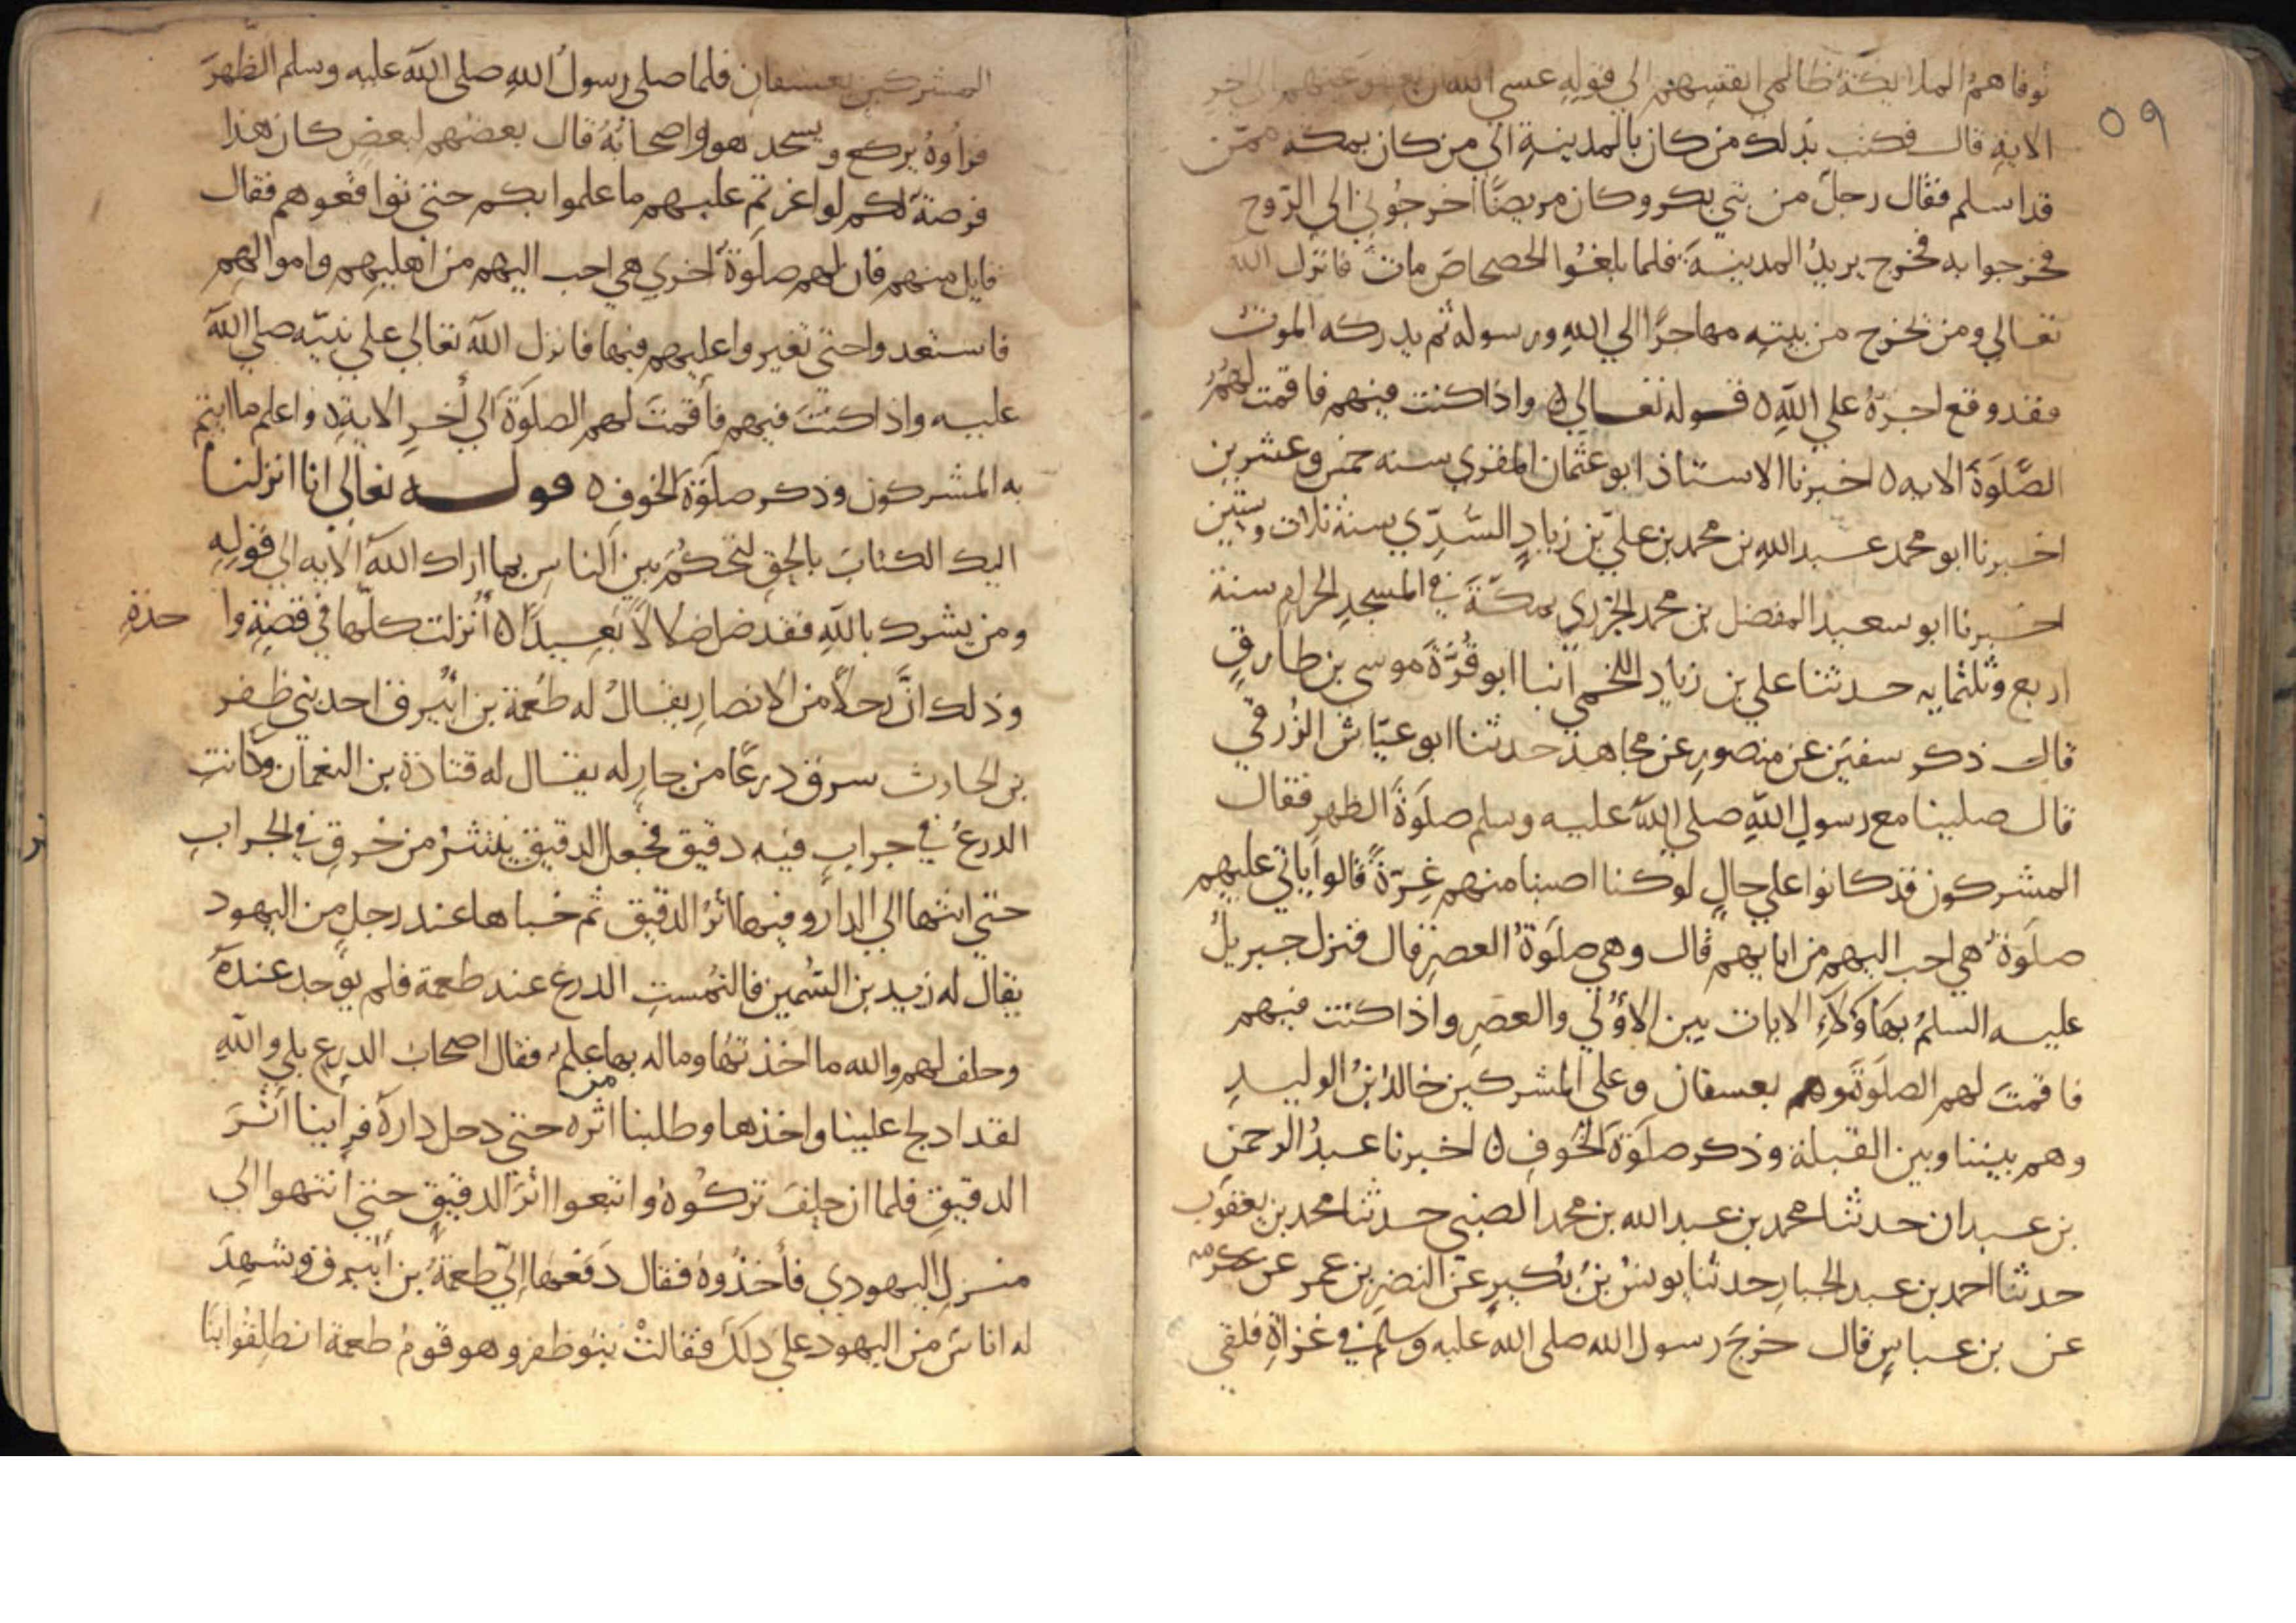 ٥٩
توفاهم الملايكة ظالمي انفسهم الي قوله عسي الله ان يعفو عنهم الي اخر
الاية قال فكتب بذلك من كان بالمدينة الي من كان بمكة ممن
قد اسلم فقال رجل من بني بكر وكان مريضا اخرجوني الي الروح
فخرجوا به فخرج يريد المدينة فلما بلغوا الحصحاص مات فانزل الله
تعالي ومن يخرج من بيته مهاجرا الي الله ورسوله ثم يدركه الموت
فقد وقع اجره علي الله ٥ قوله تعالي ٥ واذا كنت فيهم فاقمت لهم
الصلوة الايه ٥ اخبرنا الاستاذ ابو عثمان المقري سنه خمس وعشرين
اخبرنا ابو محمد عبد الله بن محمد بن علي بن زياد السدي سنة ثلاث وستين
اخبرنا ابو سعيد المفضل بن محمد الجزري بمكة في المسجد الحرام سنة
اربع وثلثمايه حدثنا علي بن زياد اللخمي انبا ابو قرة موسي بن طارق
قال ذكر سفين عن منصور عن مجاهد حدثنا ابو عياش الزرقي
قال صلينا مع رسول الله صلي الله عليه وسلم صلوة الظهر فقال
المشركون قد كانوا علي حال لو كنا اصبنا منهم غرة قالوا ياتي عليهم
صلوة هي احب اليهم من ابايهم قال وهي صلوة العصر قال فنزل جبريل
عليه السلم بهاؤلاء الايات بين الاولي والعصر واذا كنت فيهم
فاقمت لهم الصلوة وهم بعسفان وعلي المشركين خالد بن الوليد
وهم بيننا وبين القبلة وذكر صلوة الخوف ٥ اخبرنا عبد الرحمن
بن عبدان حدثنا محمد بن عبد الله بن محمد الضبي حدثنا محمد بن يعقوب
حدثنا احمد بن عبد الجبار حدثنا يونس بن بكير عن النضر بن عمر عن عكرمه
عن بن عباس قال خرج رسول الله صلي الله عليه وسلم في غزاة فلقي
المشركين بعسفان فلما صلي رسول الله صلي الله عليه وسلم الظهر
فراوه يركع ويسجد هو واصحابه قال بعضهم لبعض كان هذا
فرصة لكم لو اغرتم عليهم ما علموا بكم حتي تواقعوهم فقال
قايل منهم فان لهم صلوة اخري هي احب اليهم من اهليهم واموالهم
فاستعدوا حتي تغيروا عليهم فيها فانزل الله تعالي علي نبيه صلي الله
عليه واذا كنت فيهم فأقمت لهم الصلوة الي اخر الاية ٥ واعلم ما ايتم
به المشركون وذكر صلوة الخوف ٥ قوله تعالي انا انزلنا
اليك الكتاب بالحق لتحكم بين الناس بما اراك الله الايه الي قوله
ومن يشرك بالله فقد ضل ضلالا بعيدا ٥ أنزلت كلها في قصة وا حدة
وذلك ان رجلا من الانصار يقال له طعمة بن ابيرق احد بني ظفر
بن الحارث سرق درعا من جار له يقال له قتادة بن النعمان وكانت
الدرع في جراب فيه دقيق فجعل الدقيق ينتثر من خرق في الجراب
حتي انتها الي الدار وفيها اثر الدقيق ثم خباها عند رجل من اليهود
يقال له زيد بن السمين فالتمست الدرع عند طعمة فلم يوجد عنده
وحلف لهم والله ما اخذتها وما له بها من علم فقال اصحاب الدرع بلي والله
لقد ادلج علينا واخذها وطلبنا اثره حتي دخل داره فراينا اثر
الدقيق فلما ان حلف تركوه واتبعوا اثر الدقيق حتي انتهوا الي
منزل اليهودي فأخذوه فقال دفعها الي طعمة بن أبيرق وشهد
له اناس من اليهود علي ذلك فقالت بنو ظفر وهو قوم طعمة انطلقوا بنا